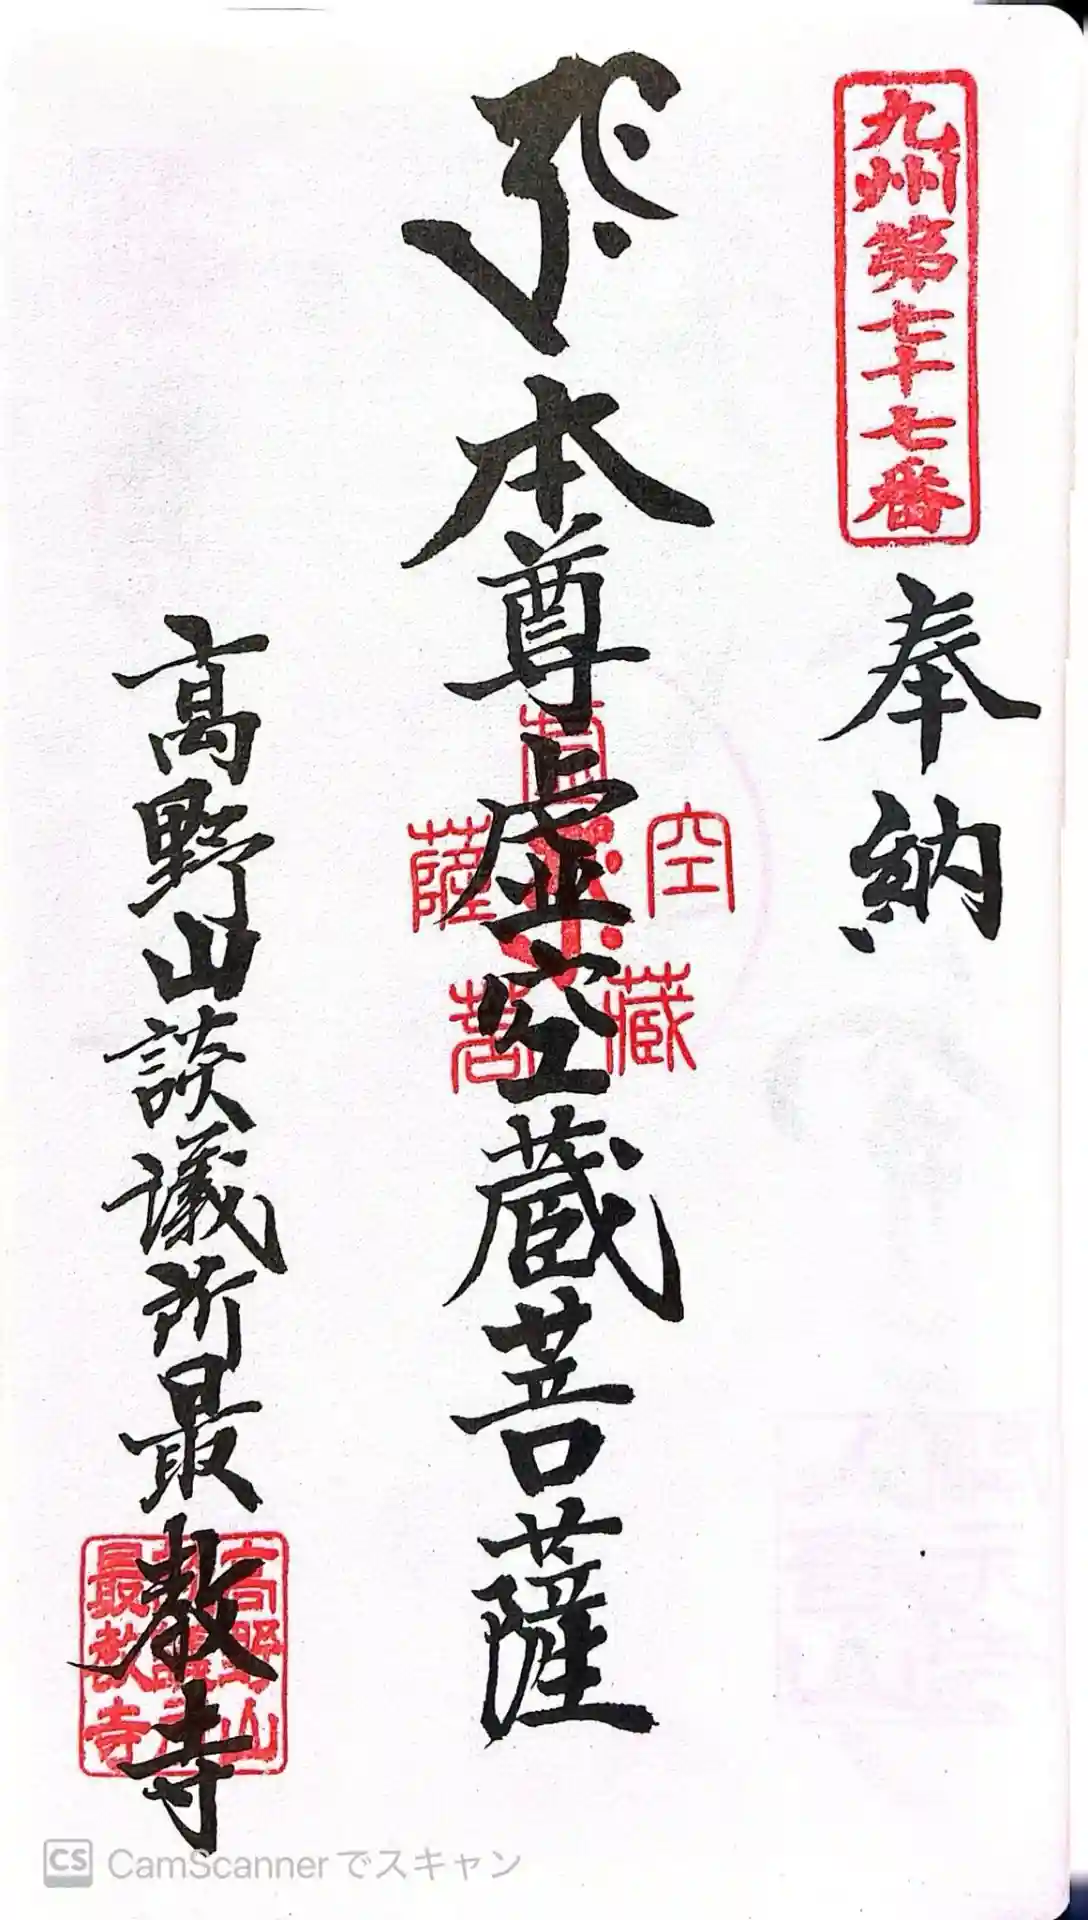 九州第七十七番
奉納
本尊虚空蔵菩薩
虚
空
藏
菩
薩
高野山談議所最教寺
高野山
最教寺
CS CamScannerでスキャン